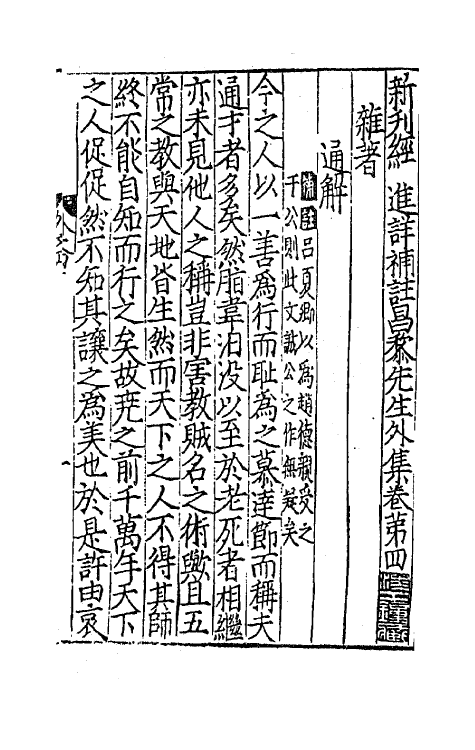 新刋經 進詳補註昌黎先生外集卷第四
雜著
通解
補註吕夏卿以爲趙德親受之
于公則此文誠公之作無疑矣
今之人以一善爲行而恥爲之慕達節而稱夫
通才者多矣然脂韋汨没以至於老死者相繼
亦未見他人之稱豈非害教賊名之術歟且五
常之教與天地皆生然而天下之人不得其師
終不能自知而行之矣故堯之前千萬年天下
之人促促然不知其讓之爲美也於是許由哀